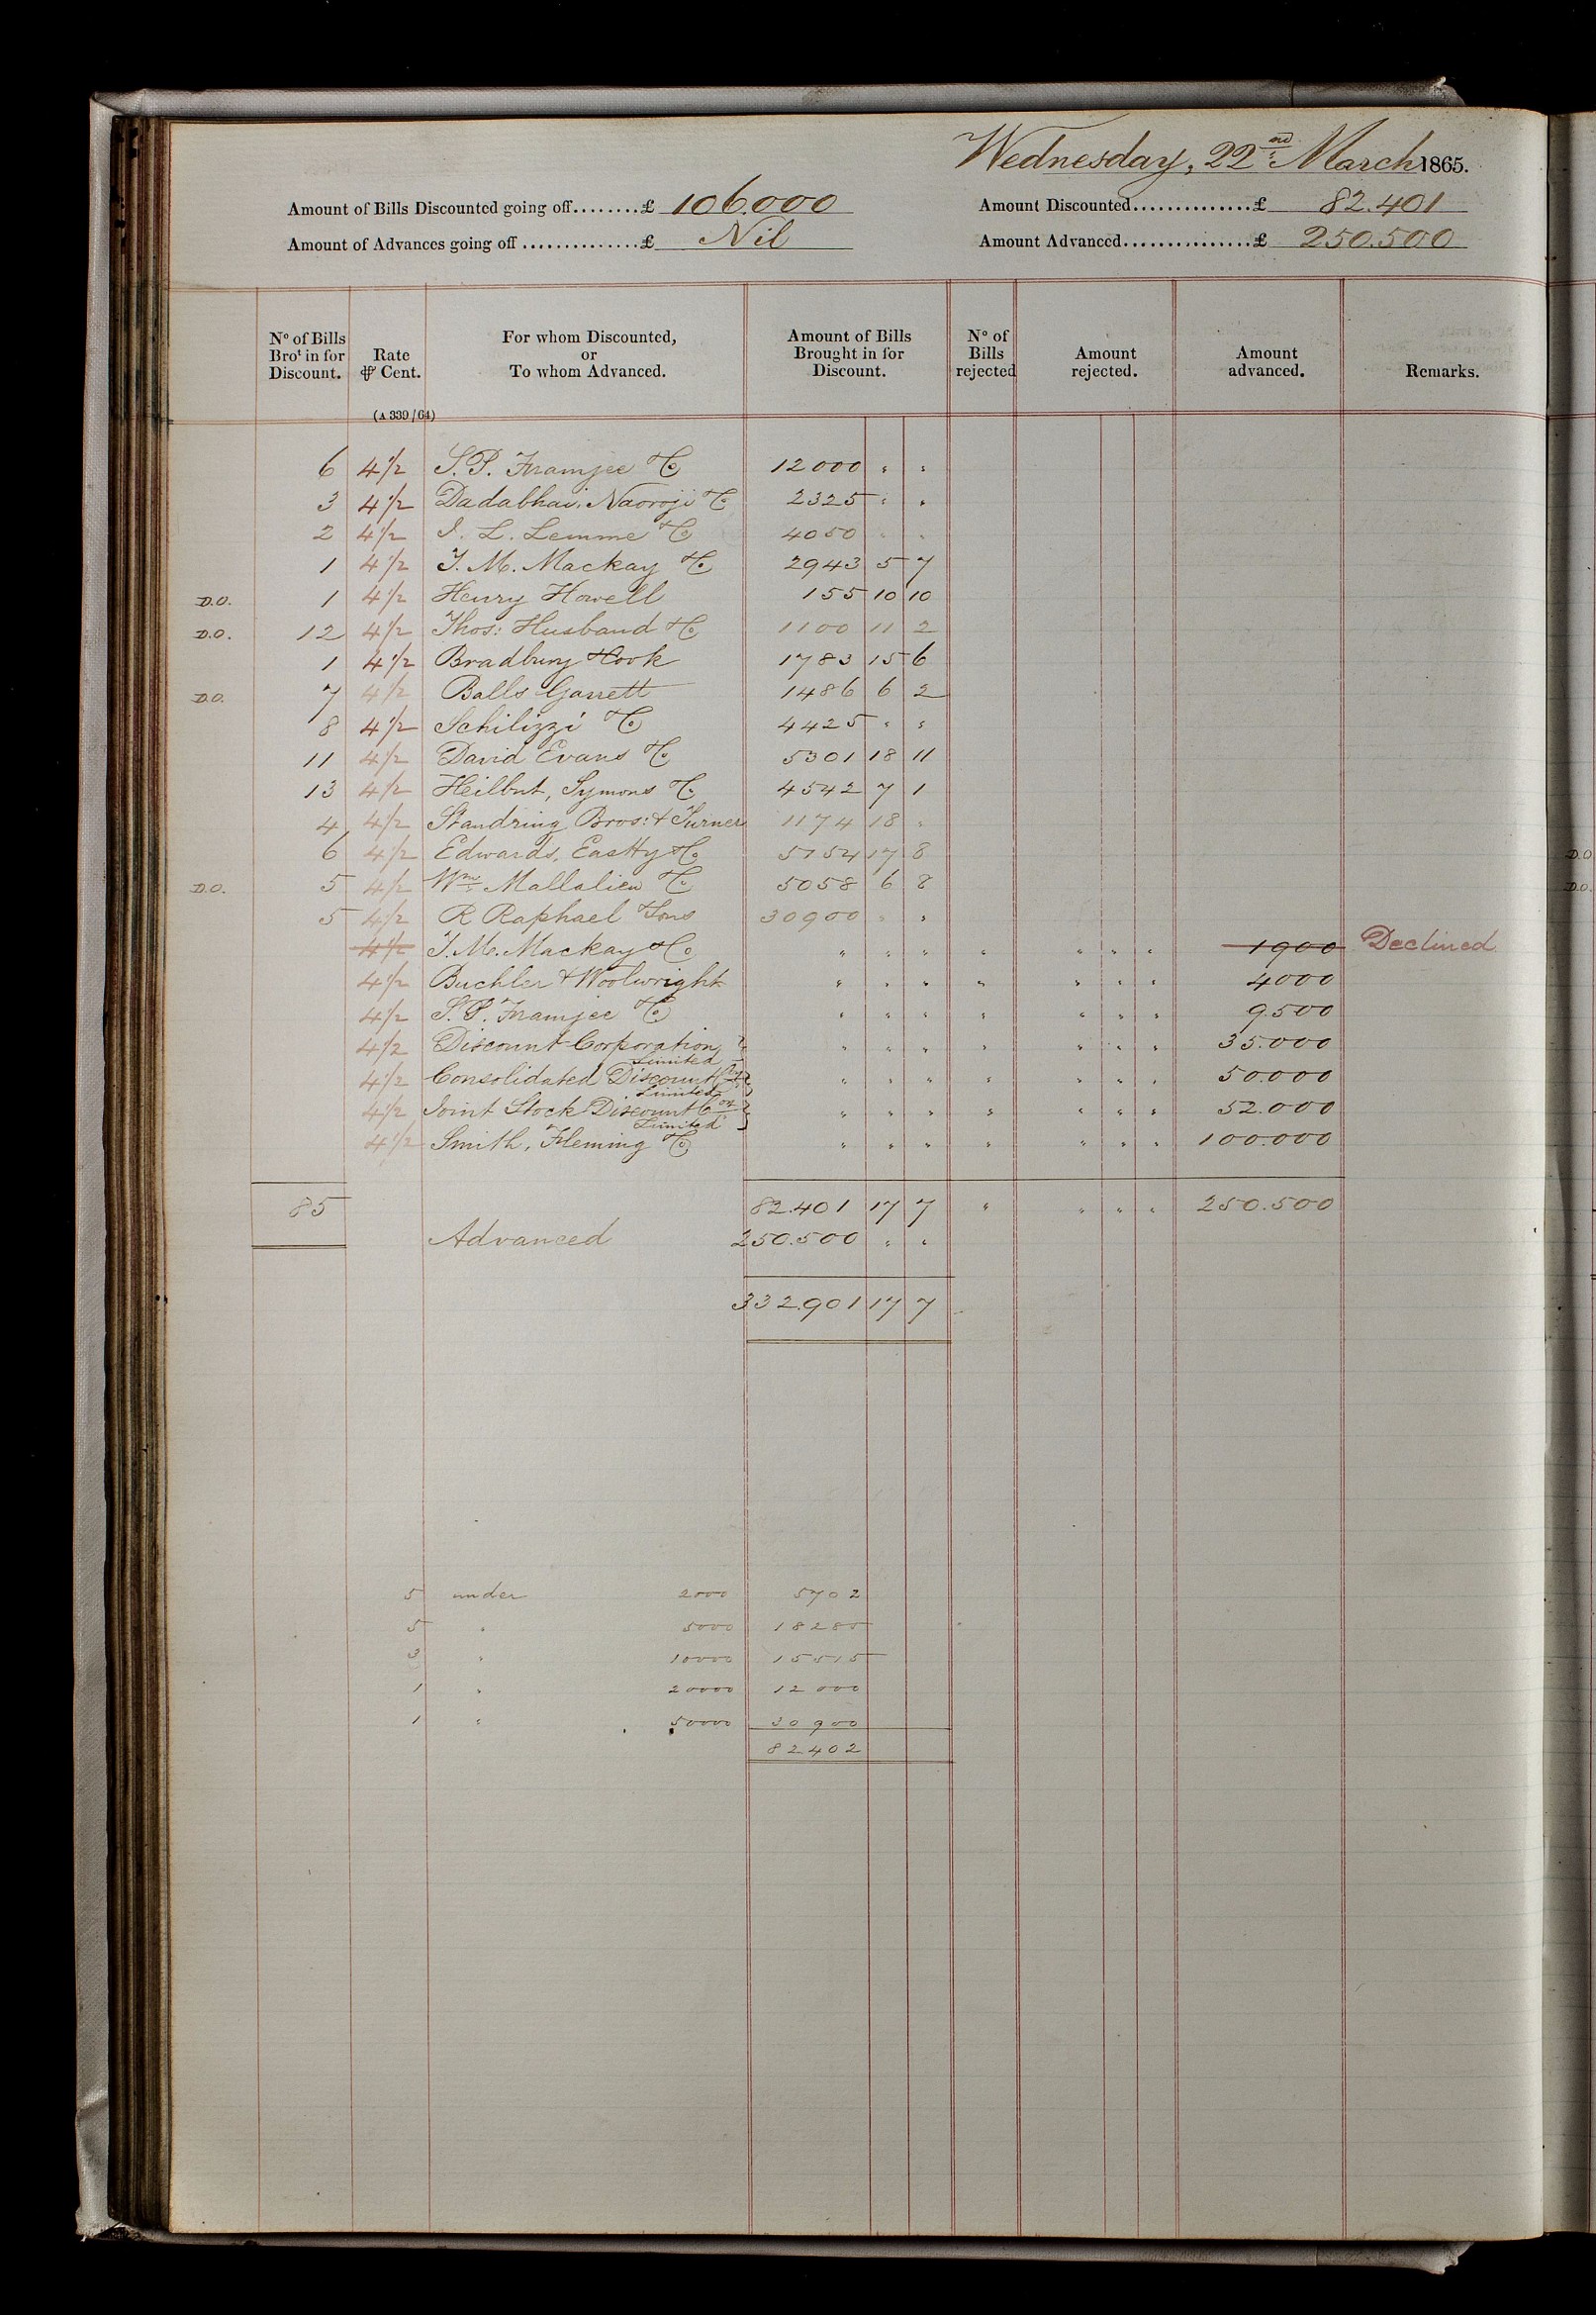 Wednesday, 22nd March 1865.
Amount of Bills Discounted going off........£ 106.000 Amount Discounted..............£ 82.401
Amount of Advances going off ..............£ Nil Amount Advanced................£ 250.500
No of Bills Brot in for Discount. Rate ⅌ Cent. For whom Discounted, or To whom Advanced. Amount of Bills Brought in for Discount. No of Bills rejected Amount rejected. Amount advanced. Remarks.
(A 339/64)
6 4½ S. P. Framjee & Co 12000 " "
3 4½ Dadabhai, Naoroji & Co 2325 " "
2 4½ I. L. Lemme & Co 4050 " "
1 4½ T. M. Mackay & Co 2943 5 7
D.O. 1 4½ Henry Howell 155 10 10
D.O. 12 4½ Thos: Husband & Co 1100 11 2
1 4½ Bradbury & Cook 1783 15 6
D.O. 7 4½ Balls Garrett 1486 6 2
8 4½ Schilizzi & Co 4425 " "
11 4½ David Evans & Co 5301 18 11
13 4½ Heilbut, Symons & Co 4542 7 1
4 4½ Standring Bros: & Turner 1174 18 "
6 4½ Edwards, Eastty & Co 5154 17 8
D.O. 5 4½ Wm Mallalieu & Co 5058 6 8
5 4½ R Raphael & Sons 30900 " "
4½ T. M. Mackay & Co " " " " " " " 1900 Declined
4½ Buchler & Woolwright " " " " " " " 4000
4½ S. P. Framjee & Co " " " " " " " 9.500
4½ Discount Corporation Limited " " " " " " " 35.000
4½ Consolidated Discount Coy Limited " " " " " " " 50.000
4½ Joint Stock Discount Coy Limited " " " " " " " 52.000
4½ Smith, Fleming & Co " " " " " " " 100.000
85 82.401 17 7 " " " " 250.500
Advanced 250.500 " "
332.901 17 7
5 under 2000 5702
5 " 5000 18285
3 " 10000 15515
1 " 20000 12000
1 " 50000 30900
82402
D.O.
D.O.